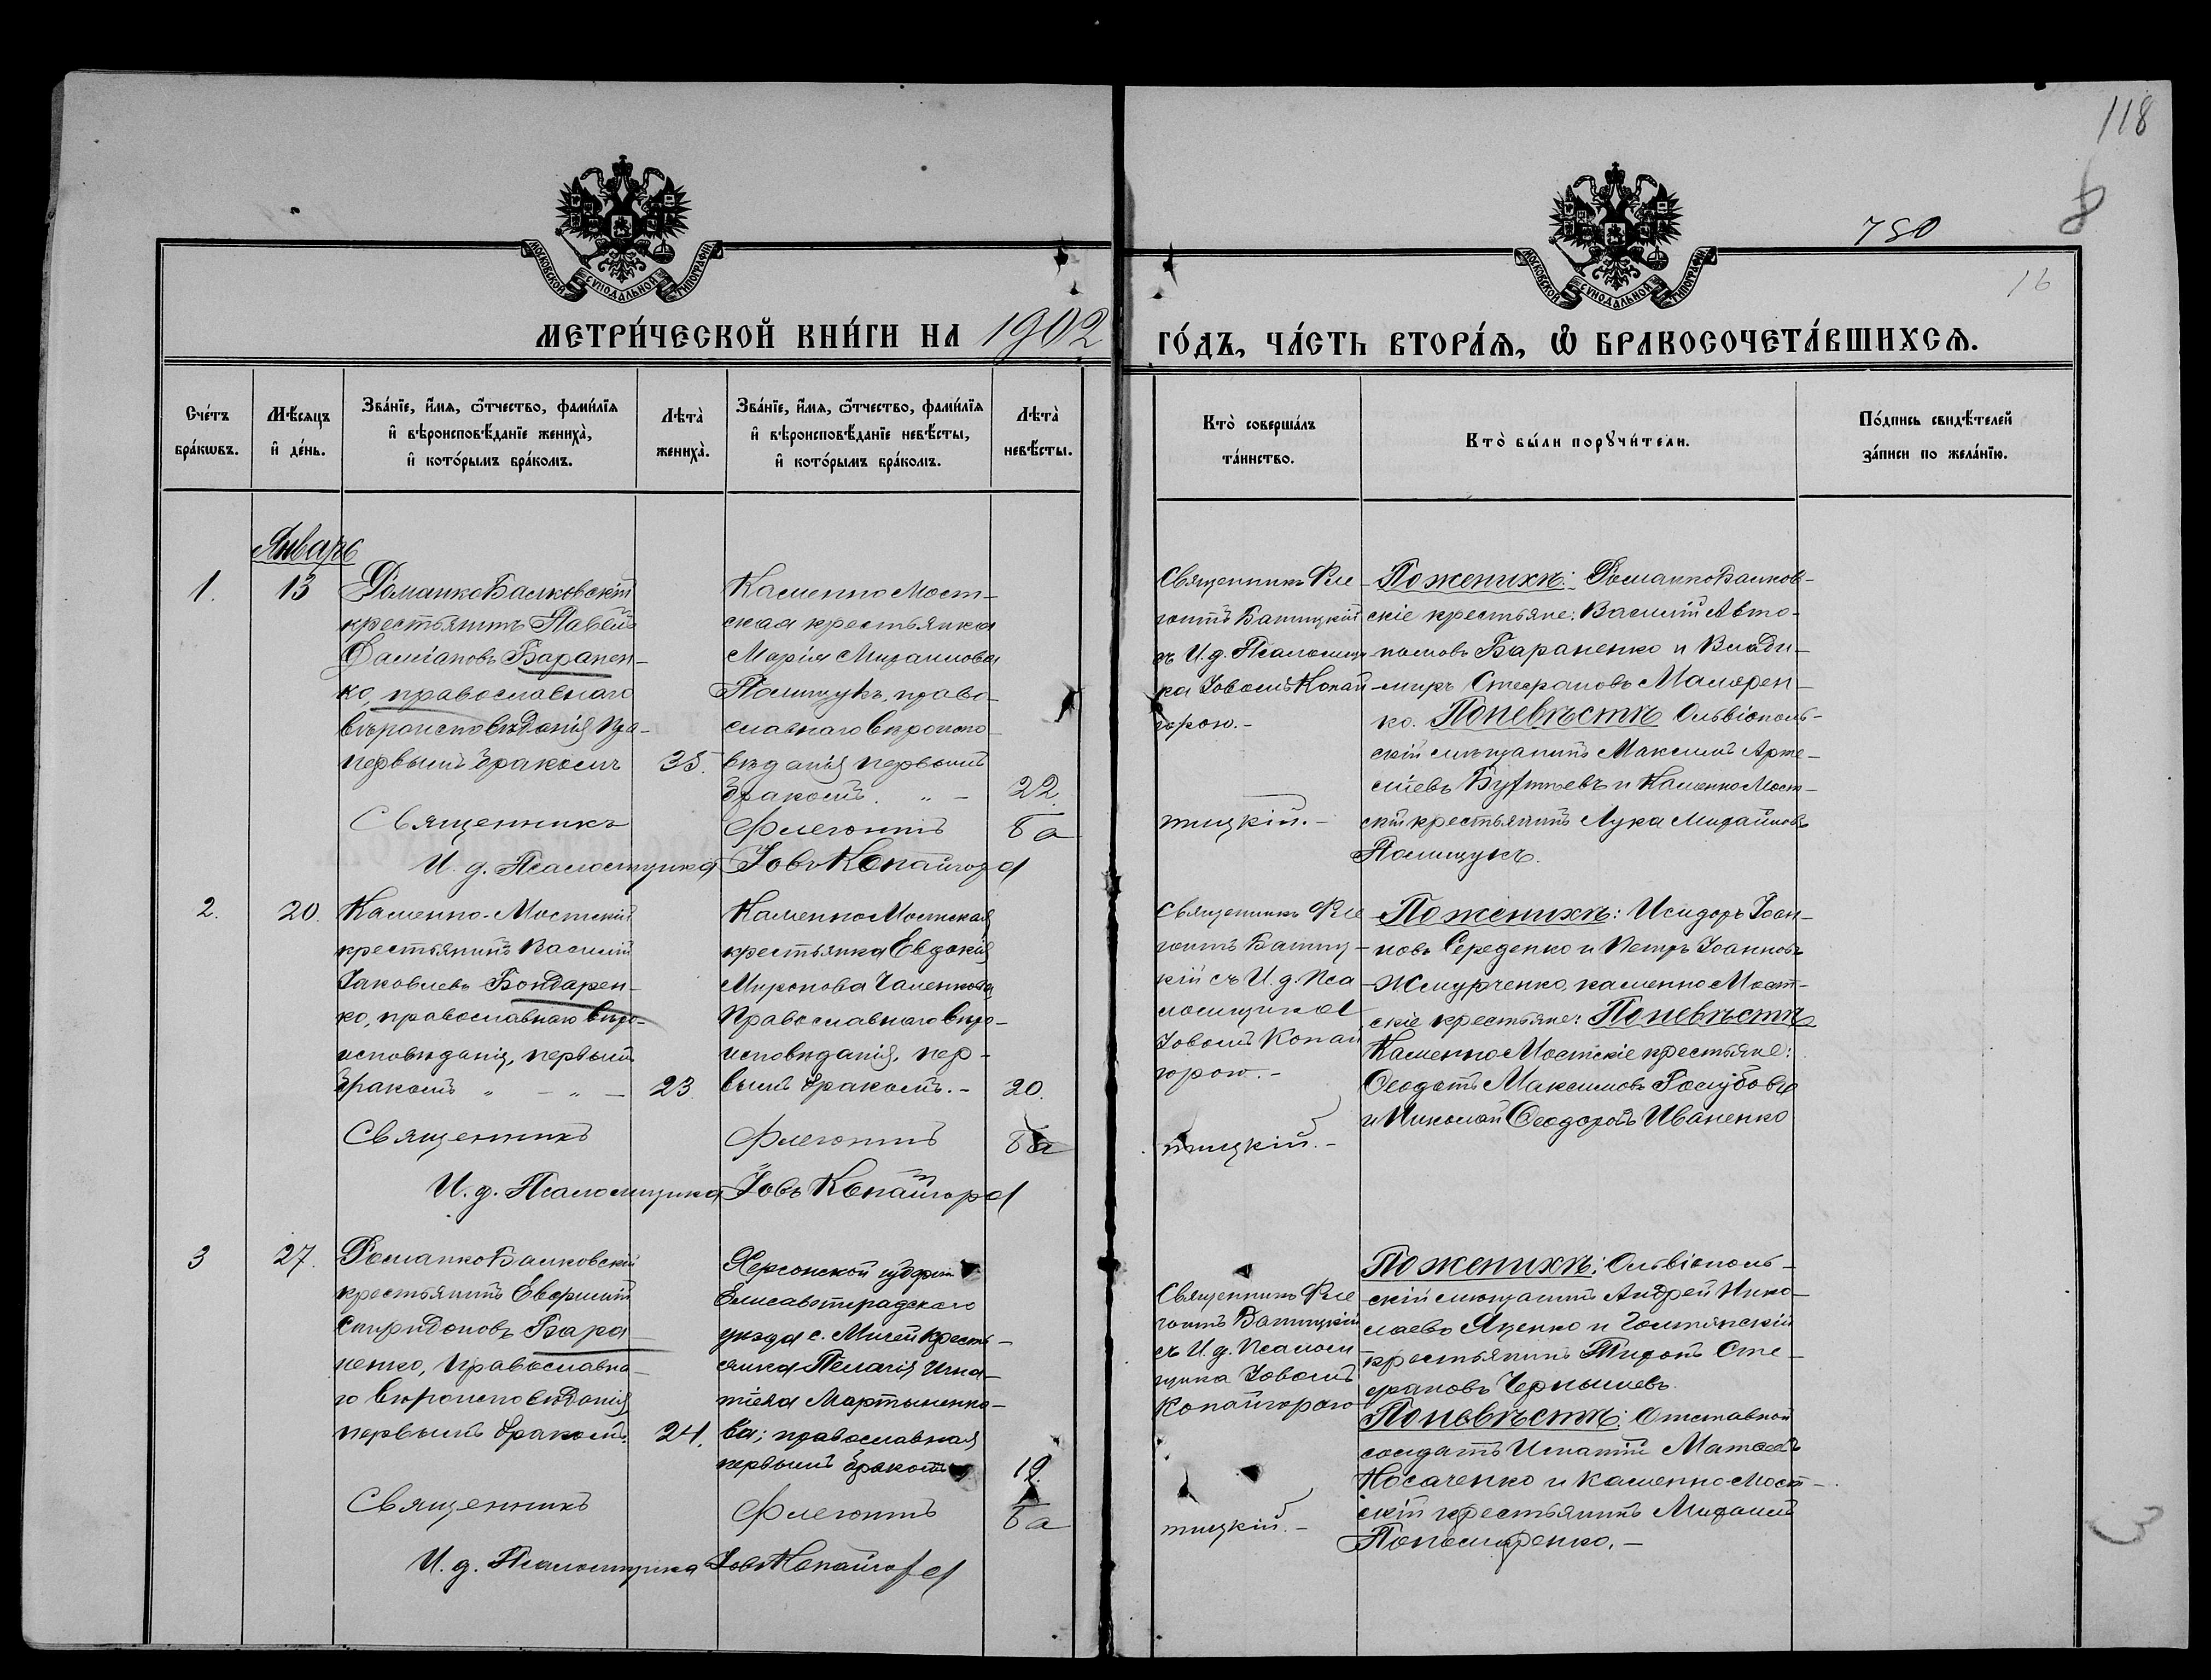 118
8
780
16
МОСКОВСКОЙ СѴНОДАЛЬНОЙ ТИПОГРАФІИ
МОСКОВСКОЙ СѴНОДАЛЬНОЙ ТИПОГРАФІИ
МЕТРИ́ЧЕСКОЙ КНИ́ГИ НА 1902 ГО́ДЪ, ЧА́СТЬ ВТОРА́Ѧ, Ѡ҆ БРАКОСОЧЕТА́ВШИХСѦ.
Сче́тъ
бра́кѡвъ.
Мѣ́сѧцъ
и҆ де́нь.
Зва́нїе, и҆́мѧ, ѻ҆́тчество, фами́лїѧ
и҆ вѣроисповѣ́данїе жениха̀,
и҆ кото́рымъ бра́комъ.
Лѣта̀
жениха̀.
Зва́нїе, и҆́мѧ, ѻ҆́тчество, фами́лїѧ
и҆ вѣроисповѣ́данїе невѣ́сты,
и҆ кото́рымъ бра́комъ.
Лѣта̀
невѣ́сты.
Кто̀ соверша́лъ
та́инство.
Кто̀ бы́ли порꙋчи́тели.
По́дпись свидѣ́телей
за́писи по жела́нїю.
Январь
1.
13
Романко Балковскій
крестьянинъ Павелъ
Даміановъ Баранен-
ко, православнаго
вѣроисповѣданія
первымъ бракомъ
35.
Каменно Мост-
ская крестьянка
Марія Михаилова
Полищукъ, право-
славнаго вѣроиспо-
вѣданія первымъ
бракомъ. „ –
22.
Священникъ Фле-
гонтъ Батицкій
съ И. д. Псаломщи-
ка Іовомъ Копай-
горою.-
По женихѣ: Романко Балков-
скіе крестьяне: Василій Авто-
номовъ Бараненко и Влади-
миръ Стефановъ Маляpен-
ко. По невѣстѣ Ольвіополь-
скій мѣщанинъ Максимъ Арте-
міевъ и Каменно Мост-
скій крестьянинъ Лука Михайловъ
Полищукъ.
Священникъ Флегонтъ Батицкій.-
И. д. Псаломщика Іовъ Копайгора
2.
20.
Каменно-Мостскій
крестьянинъ Василій
Іаковлевъ Бондарен-
ко, православнаго вѣро-
исповѣданія, первымъ
бракомъ „ – „ –
23.
Каменно Мостская
крестьянка Евдокія
Миронова Чаленкова
Православнаго вѣро-
исповѣданія, пер-
вымъ бракомъ.-
20.
Священникъ Фле-
гонтъ Батиц-
кій съ И. д. Пса-
ломщика
Іовомъ Копай-
горою.-
По женихѣ: Исидоръ Іоан-
новъ Середенко и Петръ Іоанновъ
Жмурченко, каменно Мост-
скіе крестьяне: По невѣстѣ
Каменно Мостскіе крестьяне:
Ѳеодотъ Максимовъ Голубовъ
и Николай Ѳеодоровъ Иваненко
Священникъ Флегонтъ Батицкій.-
И. д. Псаломщика Іовъ Копайгора
3
27.
Романко Балковскій
крестьянинъ Евфимій
Спиридоновъ Бара-
ненко, Православна-
го вѣроисповѣданія
первымъ бракомъ.
24.
Херсонской губерніи
Елисаветградскаго
уѣзда с. Мигей кресть-
янка Пелагія Игна-
тіева Мартыненко-
ва; православная
первымъ бракомъ
19.
Священникъ Фле-
гонтъ Батицкій
съ И. д. Псалом-
щика Іовомъ
Копайгорою
По женихѣ: Ольвіополь-
скій мѣщанинъ Андрей Нико-
лаевъ Яценко и Голтянскій
крестьянинъ Тихонъ Сте-
фановъ Чернышевъ.
По невѣстѣ: Отставной
солдатъ Игнатій
Носаченко и каменно-Мост-
скій крестьянинъ Михаилъ
Пономаренко.-
Священникъ Флегонтъ Батицкій.-
И. д. Псаломщика Іовъ Копайгора